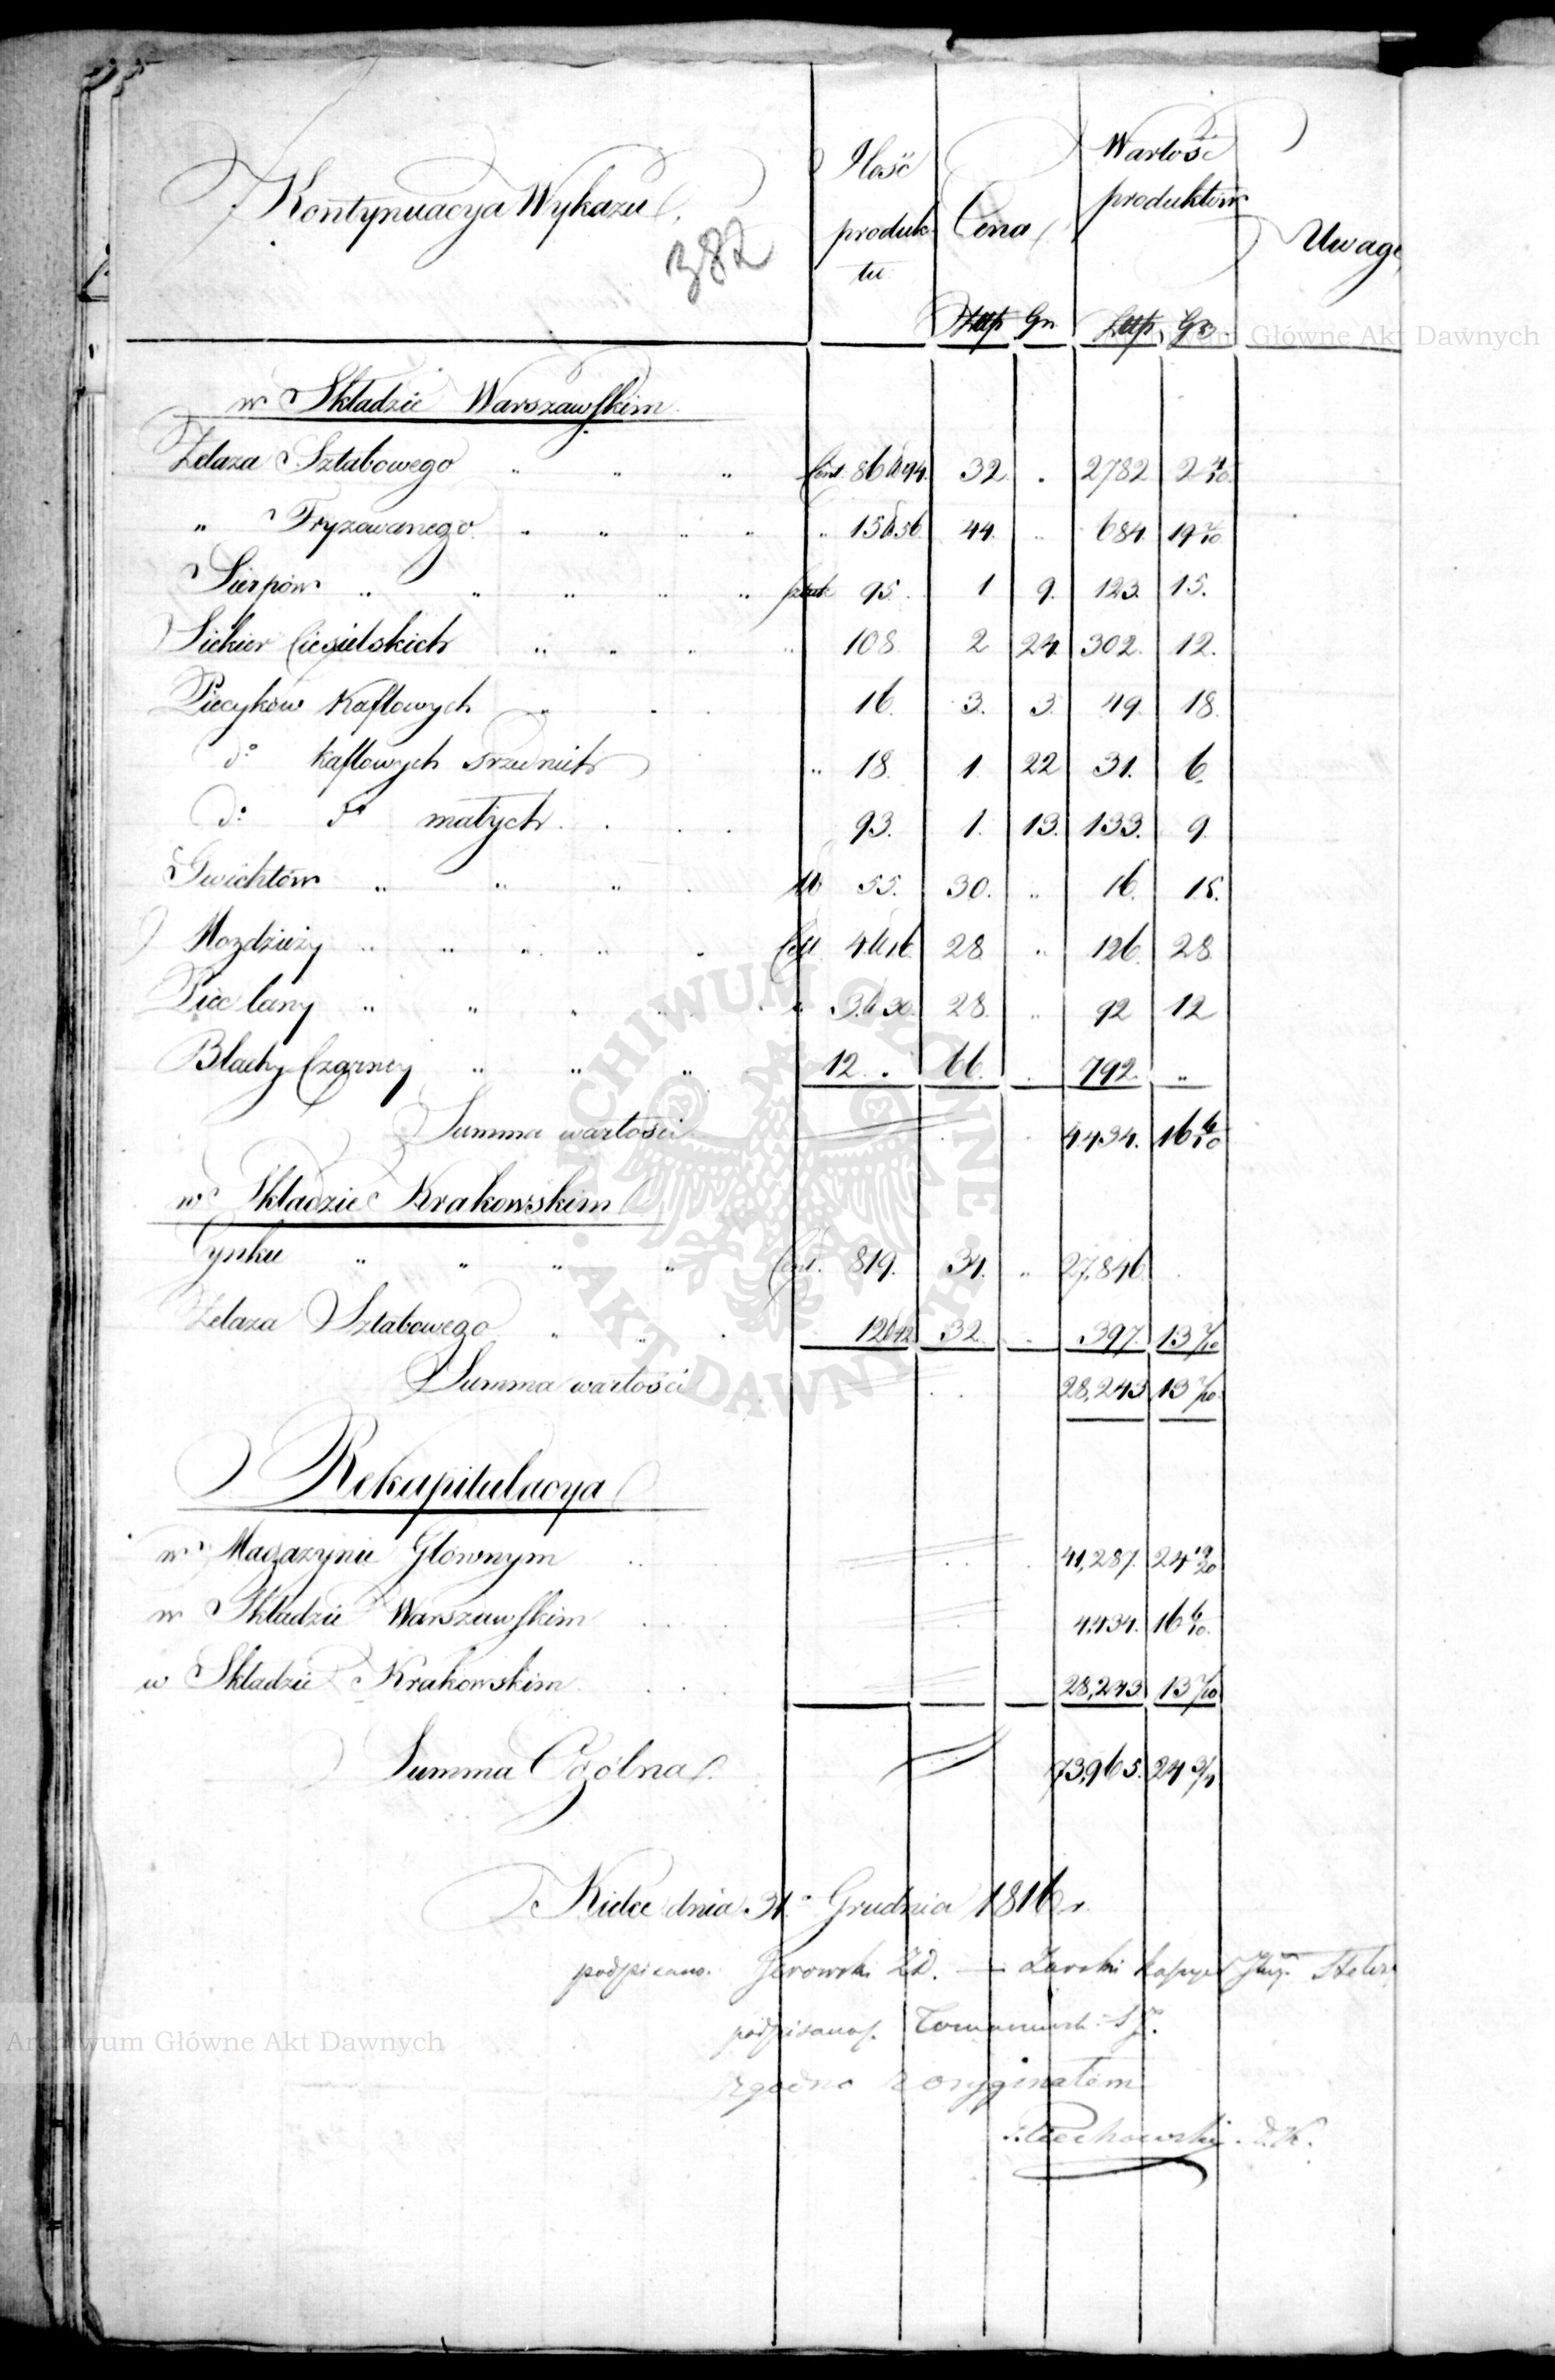 Kontynuacya Wykazu
382
Ilość produk tu
Cena
Wartość produktów
Uwagi
Złłp Gr. Złłp Gr
w Składzie Warszawskim
Żelaza Sztabowego " " " Cent. 86 ℔ 94. 32 . 2782 2 4/10
" Fryzowanego " " " " " 15 ℔ 56 44. " 684. 19 2/10
Sierpów " " " " " sztuk 95. 1 9. 123. 15.
Siekier Ciesielskich " " " " 108 2 24. 302. 12.
Piecyków Kaflowych 16. 3. 3. 49. 18.
do kaflowych srzednich " 18. 1. 22 31. 6.
do do małych 93. 1. 13. 133. 9.
Gwichtów " " " ℔ 55. 30. " 16. 15.
Mozdzieży " " " " Cent. 4 ℔ 16 28 " 126. 28
Piec lany " " " " 3 ℔ 30. 28. " 92 12
Blachy Czarney " " " 12 . 66. . 792. "
Summa wartości 4434. 16 6/10
w Składzie Krakowskim
Cynku " " " " Cent. 819. 34. " 27,846.
Żelaza Sztabowego " " 12 ℔ 42 32. " 397. 13 2/10
Summa wartości 28,243 13 2/10
Rekapitulacya
w Magazynie Głównym 41,287. 24 19/20
w Składzie Warszawskim 4434. 16 6/10.
w Składzie Krakowskim 28,243 13 2/10
Summa Ogólna 73,965. 24 3/4
Kielce dnia 31. Grudnia 1816 r.
podpisano.
podpisano.
zgodno z oryginałem
Archiwum Główne Akt Dawnych
ARCHIWUM GŁÓWNE AKT DAWNYCH
Archiwum Główne Akt Dawnych